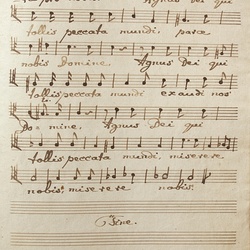 Agnus Dei qui
tollis peccata mundi, parce
nobis Domine, Agnus Dei qui
tollis peccata mundi exaudi nos
Do= mine, Agnus Dei qui
tollis peccata mundi, miserere
nobis: miserere nobis:
Fine.